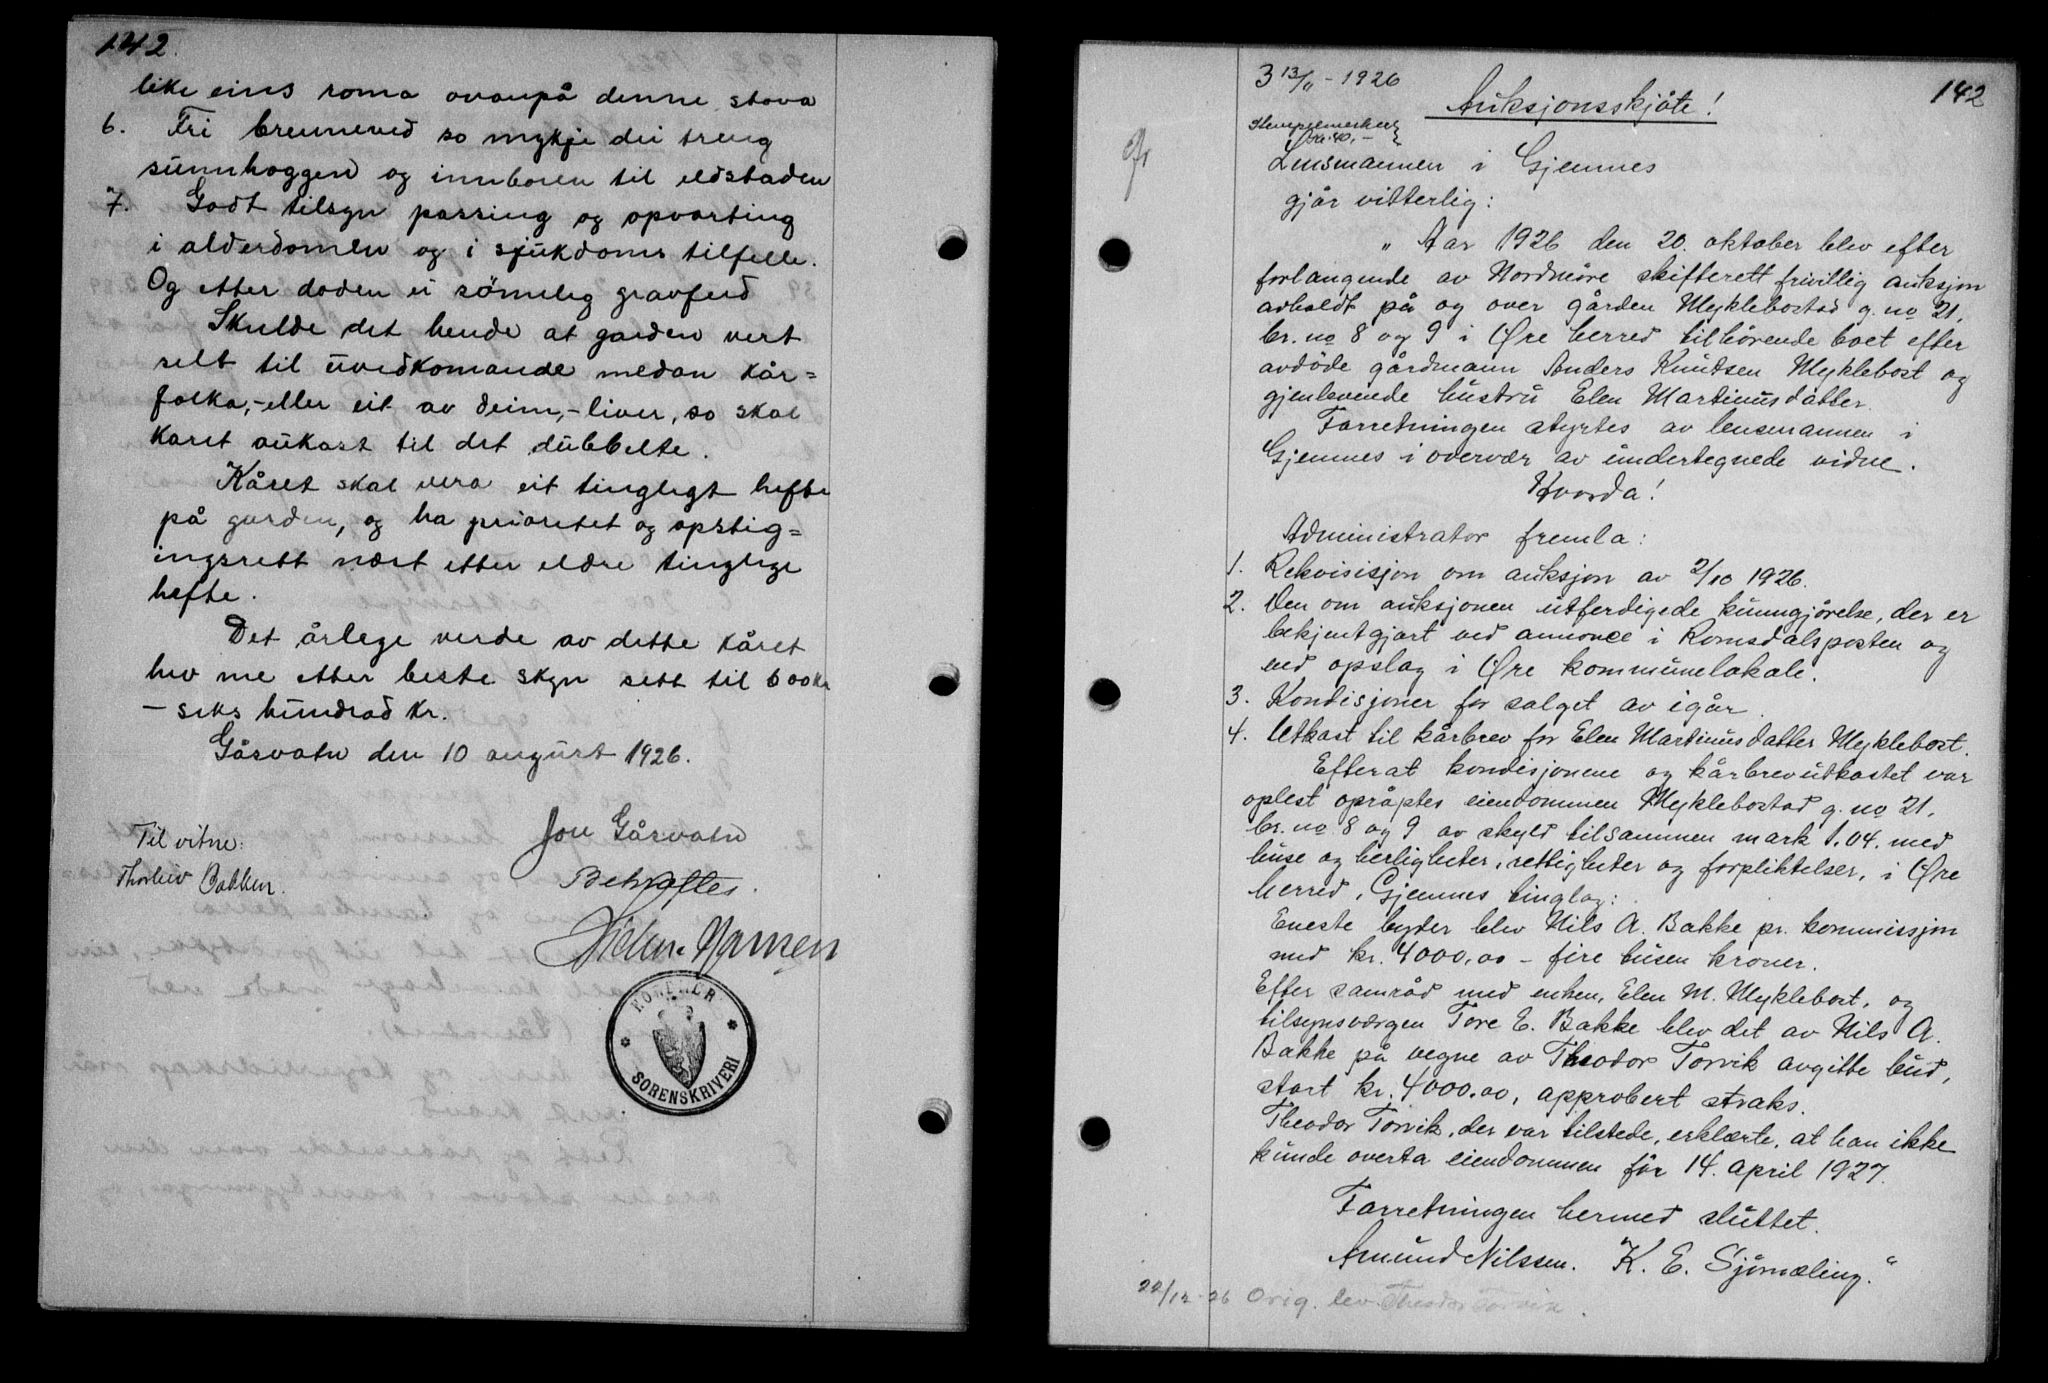 142.
like eins roma ovanpå denne stova
6. Fri brenneved so mykje dei treng
sunnhoggen og innboren til eldstaden
7. Godt tilsyn passing og opvarting
i alderdomen og i sjukdoms tilfelle.
Og etter døden ei sömeleg gravferd
Skulde det hende at garden vert
selt til uvedkomande medan kår=
folka,-eller eit av deim,-liver, so skal
Kåret aukast til det dubbelte.
Kåret skal vera eit tinglegt hefte
på garden, og ha prioritet og opstig=
ingsrett næst etter eldre tinglege
hefte.
Det årlege verde av dette kåret
hev me etter beste skyn sett til 600 kr
- seks hundrad kr.
Gåsvatn den 10 august 1926.
Jon Gåsvatn
Til vitne:
Thorleiv Bakken.
Bekræftes.
NORDMØR
SORENSKRIVERI
142
3 13/11 - 1926
Auksjonsskjøte!
Stempelmerker
kr. 40,-
Lensmannen i Gjemnes
gjør vitterlig:
„Aar 1926 den 20. oktober blev efter
forlangende av Nordmøre skifterett frivillig auksjon
avholdt på og over gården Myklebostad g. no 21,
br. no 8 og 9 i Øre herred tilhørende boet efter
avdöde gårdmann Anders Knutsen Myklebost og
gjenlevende hustru Elen Martinusdatter.
Forretningen styrtes av lensmannen i
Gjemnes i overvær av undertegnede vidne.
Hvorda!
Administrator fremla:
1. Rekvisisjon om auksjon av 2/10 1926.
2. Den om auksjonen utferdigede kunngjörelse, der er
bekjentgjort ved annonce i Romsdalsposten og
ved opslag i Øre kommunelokale.
3. Kondisjoner for salget av igår.
4. Utkast til kårbrev for Elen Martinusdatter Myklebost.
Efterat kondisjonene og kårbrevutkastet var
oplest opråptes eiendommen Myklebostad g. no 21,
br. no 8 og 9 av skyld tilsammen mark 1.04. med
huse og herligheter, rettigheter og forpliktelser, i Øre
herred, Gjemnes tinglag:
Eneste byder blev Nils A. Bakke pr. kommissjon
med kr. 4000,00 - fire tusen kroner.
Efter samråd med enken, Elen M. Myklebost, og
tilsynsværgen Tore E. Bakke blev det av Nils A.
Bakke på vegne av Theodor Torvik avgitte bud,
stort kr. 4000.00, approbert straks.
Theodor Torvik, der var tilstede, erklærte, at han ikke
kunde overta eiendommen før 14. april 1927.
Forretningen hermed sluttet.
Amund Nilssen. K. E. Sjömæling."
22/12-26 Orig. lev. Theodor Torvik.